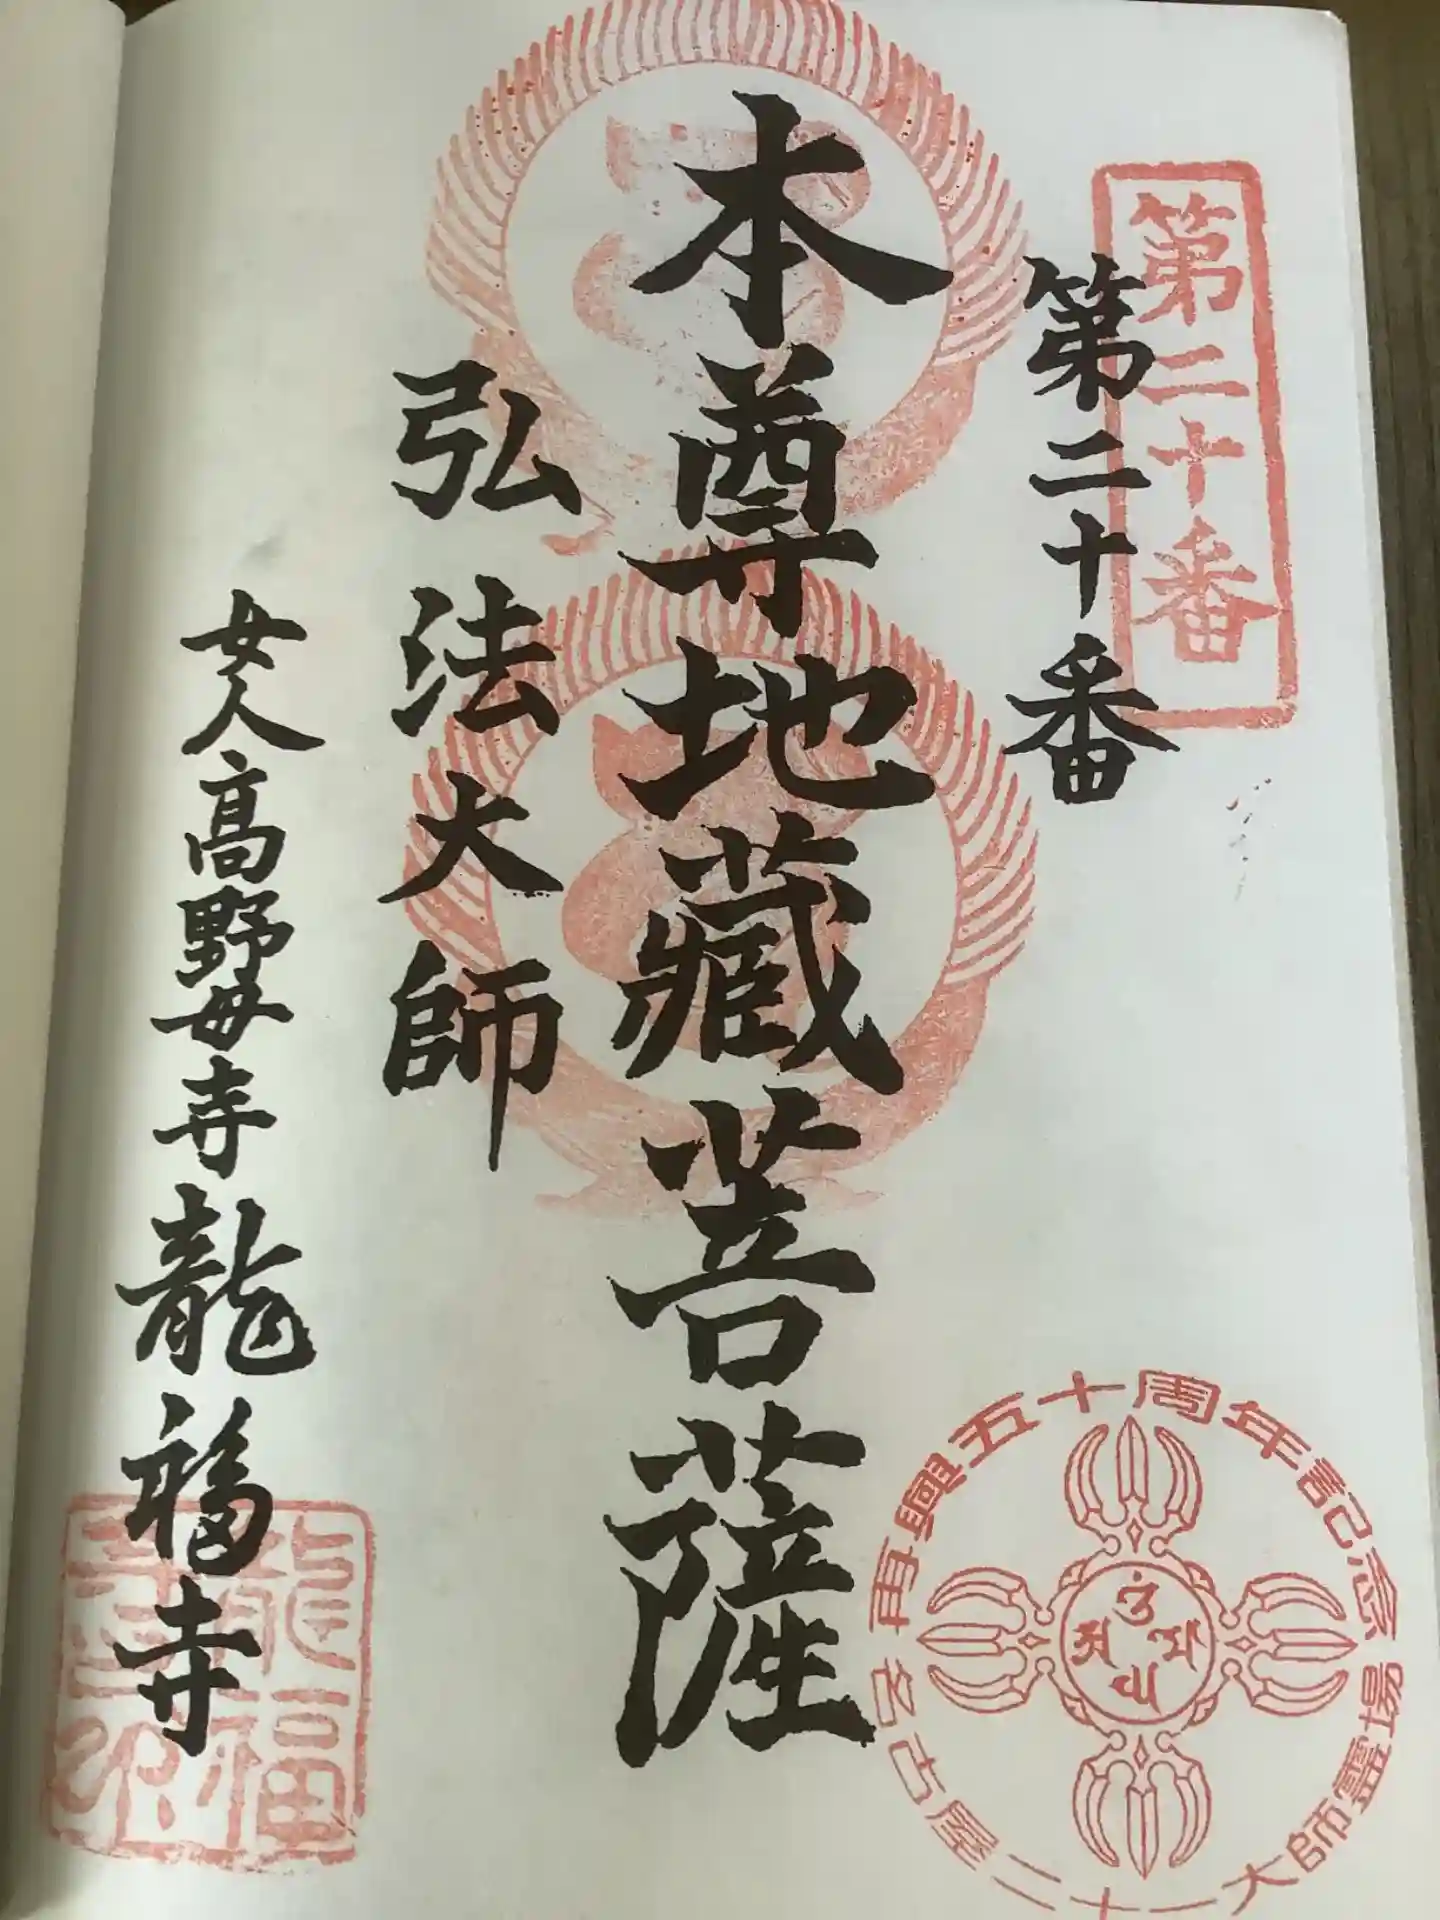 第二十番
第二十番
本尊地藏菩薩
弘法大師
女人高野母寺龍福寺
龍福寺印
再興五十周年記念
名古屋二十一大師霊場